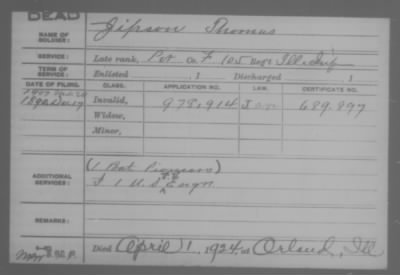 DEAD
NAME OF SOLDIER: Jipson Thomas
SERVICE: Late rank, Pvt Co. F, 105 Reg't Ill. Inf
TERM OF SERVICE: Enlisted , 1 Discharged , 1
DATE OF FILING. CLASS. APPLICATION NO. LAW. CERTIFICATE NO.
Invalid, 978,914 689,897
Widow,
Minor,
ADDITIONAL SERVICES: (1 Bat Pioneers)
F 1 U.S. Engn
REMARKS:
Died April 1, 1924, at Orland, Ill